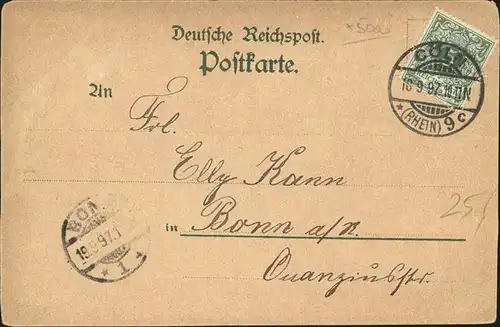 *5000
Deutsche Reichspost.
Postkarte.
CÖLN
18.9.97.
* (RHEIN) 9 c
An
Frl.
Elly Kann
in Bonn a/R.
25.-
BONN
19.9.97.
* 1 *